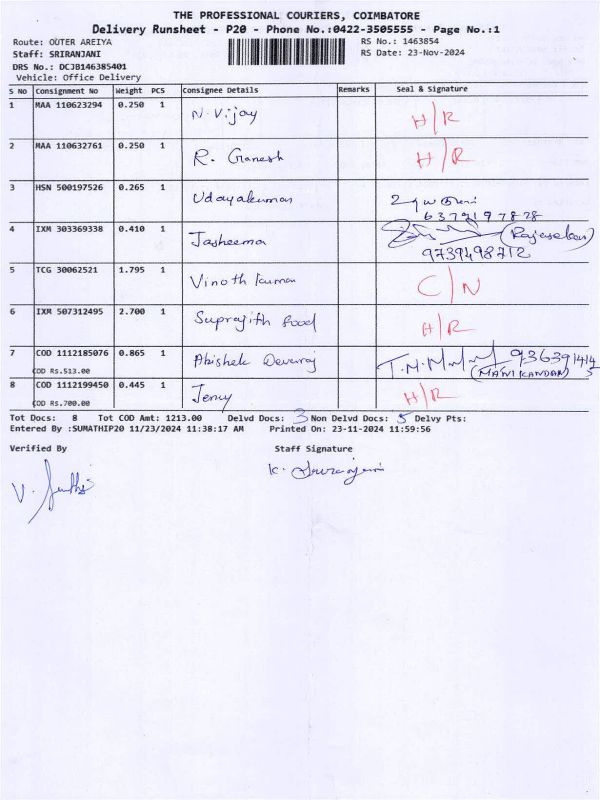 THE PROFESSIONAL COURIERS, COIMBATORE
Delivery Runsheet - P20 - Phone No.:0422-3505555 - Page No.:1
Route: OUTER AREIYA RS No.: 1463854
Staff: SRIRANJANI RS Date: 23-Nov-2024
DRS No.: DCJB146385401
Vehicle: Office Delivery
S No Consignment No Weight PCS Consignee Details Remarks Seal & Signature
1 MAA 110623294 0.250 1 N. Vijay H/R
2 MAA 110632761 0.250 1 R. Ganesh H/R
3 HSN 500197526 0.265 1 Udayakumar உதயகுமார்
6379197828
4 IXM 303369338 0.410 1 Jasheema (Rajasekar)
9739498712
5 TCG 30062521 1.795 1 Vinoth kumar C/N
6 IXM 507312495 2.700 1 Suprajith food H/R
7 COD 1112185076 0.865 1 Abishek Devaraj
COD Rs.513.00 (MANIKANDAN)
8 COD 1112199450 0.445 1 Jency H/R
COD Rs.700.00
Tot Docs: 8 Tot COD Amt: 1213.00 Delvd Docs: 3 Non Delvd Docs: 5 Delvy Pts:
Entered By :SUMATHIP20 11/23/2024 11:38:17 AM Printed On: 23-11-2024 11:59:56
Verified By Staff Signature
K. Sriranjani